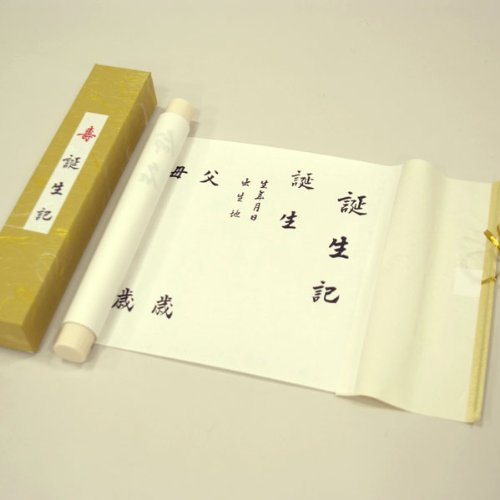 寿
誕生記
誕生記
誕生
生年月日
出生地
父 歳
母 歳